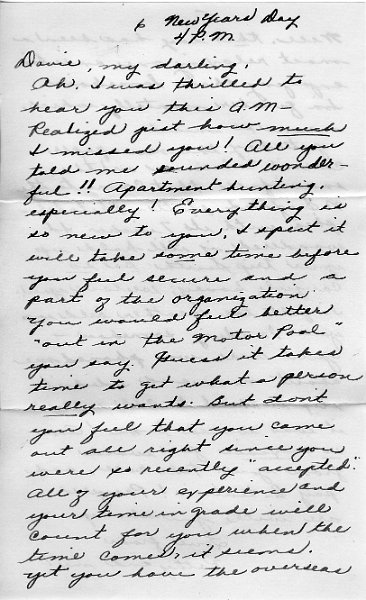 6 New Years Day
4 P.M.
Davie, my darling,
Ah. I was thrilled to
hear you this A.M—
Realized just how much
I missed you! All you
told me sounded wonder-
ful!! Apartment hunting,
especially! Everything is
so new to you, I spect it
will take some time before
you feel secure and a
part of the organization.
You would feel better
"out in the Motor Pool"
you say. Guess it takes
time to get what a person
really wants. But dont
you feel that you came
out all right since you
were so recently "accepted".
All of your experience and
your time in grade will
count for you when the
time comes, it seems.
Yet you have the overseas